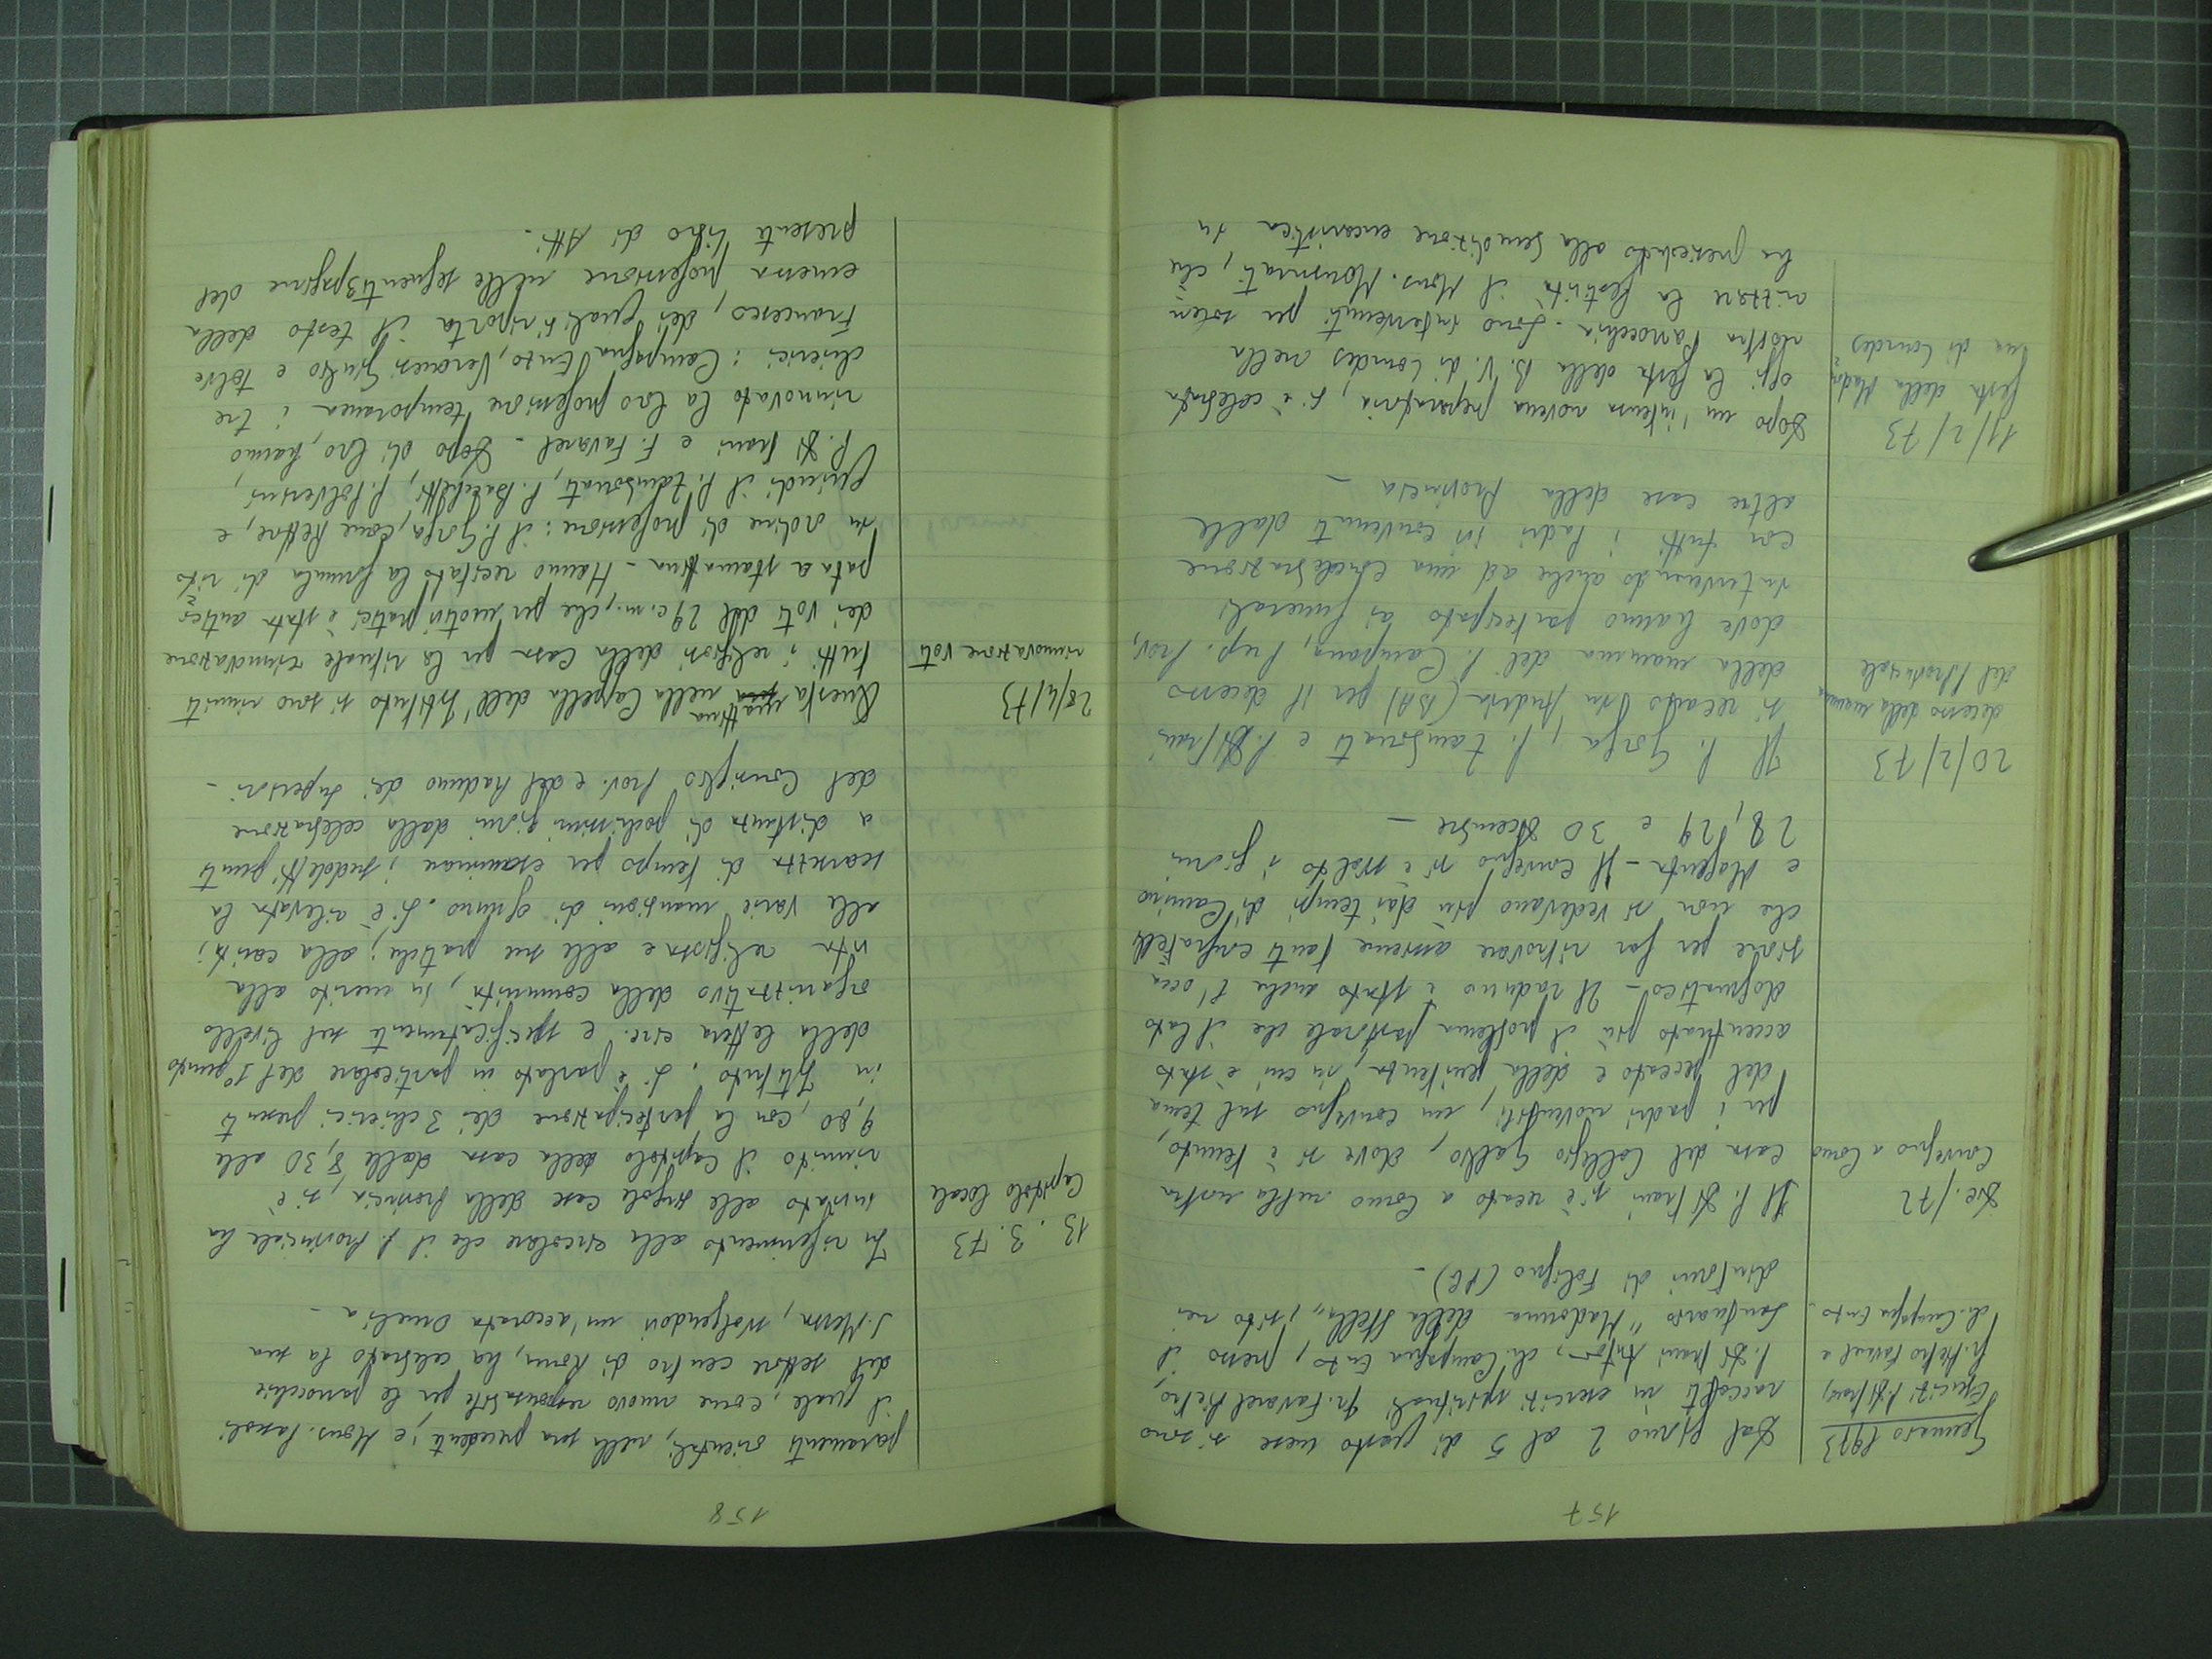 157
Gennaio 1973
Esercizi P. Di Bari,
fr. Pietro Favarel e
ch. Campagna Enzo.
Dal giorno 2 al 5 di questo mese si sono
raccolti in esercizi spirituali fr. Favarel Pietro,
P. Di Bari Anton, ch. Campagna Enzo, presso il
Santuario "Madonna della Stella", sito nei
dintorni di Foligno (PG) -
Dic./72
Convegno a Como
Il P. Di Bari si è recato a Como nella nostra
casa del Collegio Gallio, dove si è tenuto,
per i padri novensili, un convegno sul tema
del peccato e della penitenza, in cui è stato
accentrato più il problema pastorale che il lato
dogmatico - Il raduno è stato anche l'occa
sione per far ritrovare assieme tanti confratelli
che non si vedevano più dai tempi di Camino
e Magenta - Il Convegno si è svolto i giorni
28, 29 e 30 dicembre -
20/2/73
decesso della mamma
del Provinciale
Il P. Gorga, P. Zambonati e P. Di Bari
si recano in Andria (BA) per il decesso
della mamma del P. Campana, Prep. Prov.,
dove hanno partecipato ai funerali
intervenendo anche ad una concelebrazione
con tutti i Padri ivi convenuti dalle
altre case della Provincia -
11/2/73
festa della Madon
na di Lourdes
Dopo un'intensa novena preparatoria, si è celebrata
oggi la festa della B. V. di Lourdes nella
nostra Parrocchia. Sono intervenuti per solen
nizzare la festività il Mons. che
ha presieduto alla benedizione eucaristica in
158
paramenti orientali, nella sera precedente; e Mons.
il quale, come nuovo responsabile per le parrocchie
del settore centro di Roma, ha celebrato la sua
S. Messa, svolgendovi un'accorata Omelia -
13. 3. 73
Capitolo locale
In riferimento alla circolare che il P. Provinciale ha
inviato alle singole case della Provincia, si è
riunito il Capitolo della casa dalle 8,30 alle
9,80, con la partecipazione dei 3 chierici presenti
in Istituto. Si è parlato in particolare del 1° punto
della lettera circ. e specificatamente sul livello
organizzativo della comunità, in merito alla
vita religiosa e alle sue pratiche; alla carità;
alle varie mansioni di ognuno. Si è rilevata la
scarsezza di tempo per esaminare i suddetti punti
a distanza di pochissimi giorni dalla celebrazione
del Consiglio Prov. e del Raduno dei Superiori -
28/4/73
rinnovazione voti
Questa mattina nella Cappella dell'Istituto si sono riuniti
tutti i religiosi della Casa per la rituale rinnovazione
dei voti del 29 c.m., che per motivi pratici è stata antici
pata a stamattina - Hanno recitato la formula di rito
in ordine di professione: il P. Gorga, come Rettore, e
quindi il P. Zambonati, P. Bacchetti, P. Polverini,
P. Di Bari e F. Favarel - Dopo di loro, hanno
rinnovato la loro professione temporanea i tre
chierici: Campagna Enzo, Veronesi Giulio e Tolve
Francesco, dei quali si riporta il testo della
emessa professione nelle seguenti 3 pagine del
presente Libro di Atti. -